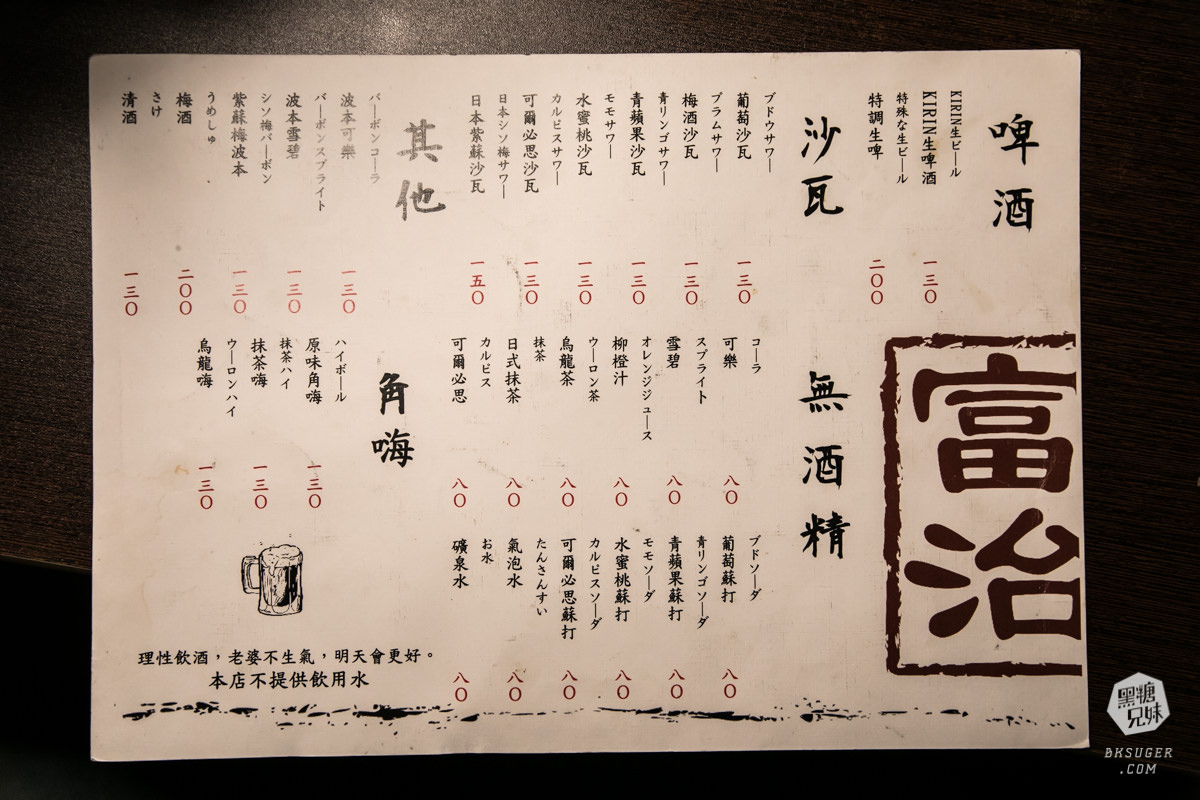 啤酒
KIRIN生ビール
KIRIN生啤酒
一三〇
特殊な生ビール
特調生啤
二〇〇
沙瓦
ブドウサワー
葡萄沙瓦
一三〇
プラムサワー
梅酒沙瓦
一三〇
青リンゴサワー
青蘋果沙瓦
一三〇
モモサワー
水蜜桃沙瓦
一三〇
カルピスサワー
可爾必思沙瓦
一三〇
日本シソ梅サワー
日本紫蘇沙瓦
一五〇
其他
バーボンコーラ
波本可樂
一三〇
バーボンスプライト
波本雪碧
一三〇
シソ梅バーボン
紫蘇梅波本
一三〇
うめしゅ
梅酒
二〇〇
さけ
清酒
一三〇
富治
無酒精
コーラ
可樂
八〇
スプライト
雪碧
八〇
オレンジジュース
柳橙汁
八〇
ウーロン茶
烏龍茶
八〇
抹茶
日式抹茶
八〇
カルピス
可爾必思
八〇
ブドソーダ
葡萄蘇打
八〇
青リンゴソーダ
青蘋果蘇打
八〇
モモソーダ
水蜜桃蘇打
八〇
カルピスソーダ
可爾必思蘇打
八〇
たんさんすい
氣泡水
八〇
お水
礦泉水
八〇
角嗨
ハイボール
原味角嗨
一三〇
抹茶ハイ
抹茶嗨
一三〇
ウーロンハイ
烏龍嗨
一三〇
理性飲酒，老婆不生氣，明天會更好。
本店不提供飲用水
黑糖兄妹
BKSUGER
.COM